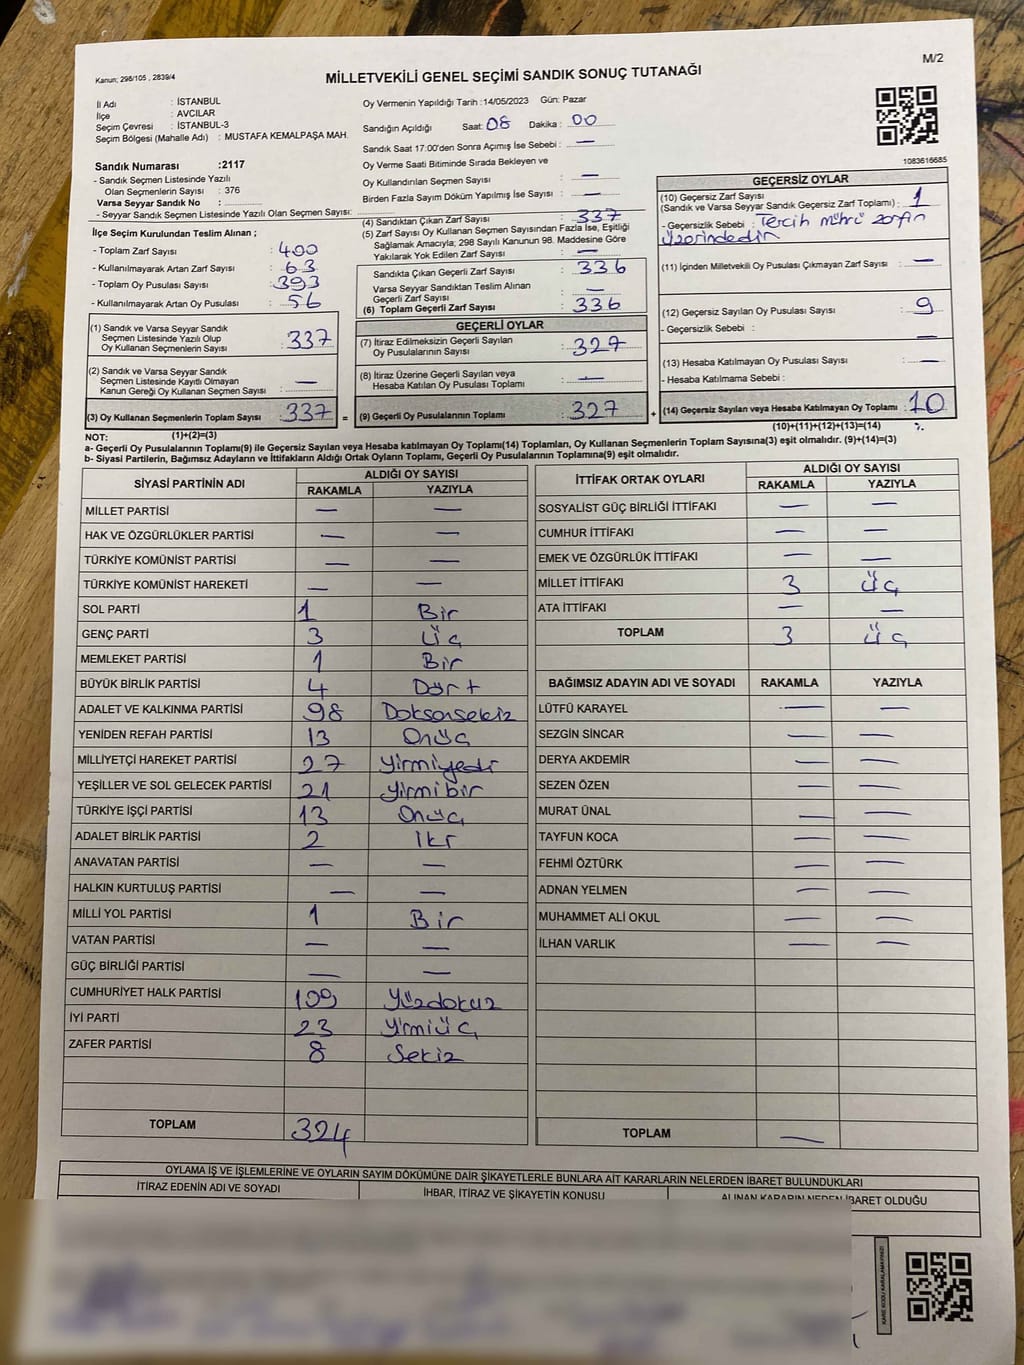 M/2
Kanun; 298/105 , 2839/4
MİLLETVEKİLİ GENEL SEÇİMİ SANDIK SONUÇ TUTANAĞI
İl Adı : İSTANBUL
İlçe : AVCILAR
Seçim Çevresi : İSTANBUL-3
Seçim Bölgesi (Mahalle Adı) : MUSTAFA KEMALPAŞA MAH.
Sandık Numarası :2117
- Sandık Seçmen Listesinde Yazılı
Olan Seçmenlerin Sayısı : 376
Varsa Seyyar Sandık No :
- Seyyar Sandık Seçmen Listesinde Yazılı Olan Seçmen Sayısı:
İlçe Seçim Kurulundan Teslim Alınan ;
- Toplam Zarf Sayısı : 400
- Kullanılmayarak Artan Zarf Sayısı : 63
- Toplam Oy Pusulası Sayısı : 393
- Kullanılmayarak Artan Oy Pusulası : 56
(1) Sandık ve Varsa Seyyar Sandık
Seçmen Listesinde Yazılı Olup
Oy Kullanan Seçmenlerin Sayısı : 337
(2) Sandık ve Varsa Seyyar Sandık
Seçmen Listesinde Kayıtlı Olmayan
Kanun Gereği Oy Kullanan Seçmen Sayısı : —
(3) Oy Kullanan Seçmenlerin Toplam Sayısı : 337 =
(1)+(2)=(3)
Oy Vermenin Yapıldığı Tarih :14/05/2023 Gün: Pazar
Sandığın Açıldığı Saat: 08 Dakika : 00
Sandık Saat 17:00'den Sonra Açımış İse Sebebi : —
Oy Verme Saati Bitiminde Sırada Bekleyen ve
Oy Kullandırılan Seçmen Sayısı : —
Birden Fazla Sayım Döküm Yapılmış İse Sayısı : —
(4) Sandıktan Çıkan Zarf Sayısı : 337
(5) Zarf Sayısı Oy Kullanan Seçmen Sayısından Fazla İse, Eşitliği
Sağlamak Amacıyla; 298 Sayılı Kanunun 98. Maddesine Göre
Yakılarak Yok Edilen Zarf Sayısı : —
Sandıkta Çıkan Geçerli Zarf Sayısı : 336
Varsa Seyyar Sandıktan Teslim Alınan
Geçerli Zarf Sayısı : —
(6) Toplam Geçerli Zarf Sayısı : 336
GEÇERLİ OYLAR
(7) İtiraz Edilmeksizin Geçerli Sayılan
Oy Pusulalarının Sayısı : 327
(8) İtiraz Üzerine Geçerli Sayılan veya
Hesaba Katılan Oy Pusulası Toplamı : —
(9) Geçerli Oy Pusulalarının Toplamı : 327 +
1083616685
GEÇERSİZ OYLAR
(10) Geçersiz Zarf Sayısı
(Sandık ve Varsa Seyyar Sandık Geçersiz Zarf Toplamı) : 1
- Geçersizlik Sebebi : Tercih mührü zarfın
üzerindedir
(11) İçinden Milletvekili Oy Pusulası Çıkmayan Zarf Sayısı : —
(12) Geçersiz Sayılan Oy Pusulası Sayısı : 9
- Geçersizlik Sebebi : —
(13) Hesaba Katılmayan Oy Pusulası Sayısı : —
- Hesaba Katılmama Sebebi :
(14) Geçersiz Sayılan veya Hesaba Katılmayan Oy Toplamı : 10
(10)+(11)+(12)+(13)=(14)
NOT:
a- Geçerli Oy Pusulalarının Toplamı(9) ile Geçersiz Sayılan veya Hesaba katılmayan Oy Toplamı(14) Toplamları, Oy Kullanan Seçmenlerin Toplam Sayısına(3) eşit olmalıdır. (9)+(14)=(3)
b- Siyasi Partilerin, Bağımsız Adayların ve İttifakların Aldığı Ortak Oyların Toplamı, Geçerli Oy Pusulalarının Toplamına(9) eşit olmalıdır.
SİYASİ PARTİNİN ADI ALDIĞI OY SAYISI
RAKAMLA YAZIYLA
MİLLET PARTİSİ — —
HAK VE ÖZGÜRLÜKLER PARTİSİ — —
TÜRKİYE KOMÜNİST PARTİSİ — —
TÜRKİYE KOMÜNİST HAREKETİ — —
SOL PARTİ 1 Bir
GENÇ PARTİ 3 Üç
MEMLEKET PARTİSİ 1 Bir
BÜYÜK BİRLİK PARTİSİ 4 Dört
ADALET VE KALKINMA PARTİSİ 98 Doksansekiz
YENİDEN REFAH PARTİSİ 13 Onüç
MİLLİYETÇİ HAREKET PARTİSİ 27 Yirmiyedi
YEŞİLLER VE SOL GELECEK PARTİSİ 21 Yirmibir
TÜRKİYE İŞÇİ PARTİSİ 13 Onüç
ADALET BİRLİK PARTİSİ 2 İki
ANAVATAN PARTİSİ — —
HALKIN KURTULUŞ PARTİSİ — —
MİLLİ YOL PARTİSİ 1 Bir
VATAN PARTİSİ — —
GÜÇ BİRLİĞİ PARTİSİ — —
CUMHURİYET HALK PARTİSİ 109 Yüzdokuz
İYİ PARTİ 23 Yirmiüç
ZAFER PARTİSİ 8 Sekiz
TOPLAM 324
İTTİFAK ORTAK OYLARI ALDIĞI OY SAYISI
RAKAMLA YAZIYLA
SOSYALİST GÜÇ BİRLİĞİ İTTİFAKI — —
CUMHUR İTTİFAKI — —
EMEK VE ÖZGÜRLÜK İTTİFAKI — —
MİLLET İTTİFAKI 3 Üç
ATA İTTİFAKI — —
TOPLAM 3 Üç
BAĞIMSIZ ADAYIN ADI VE SOYADI RAKAMLA YAZIYLA
LÜTFÜ KARAYEL — —
SEZGİN SİNCAR — —
DERYA AKDEMİR — —
SEZEN ÖZEN — —
MURAT ÜNAL — —
TAYFUN KOCA — —
FEHMİ ÖZTÜRK — —
ADNAN YELMEN — —
MUHAMMET ALİ OKUL — —
İLHAN VARLIK — —
TOPLAM —
OYLAMA İŞ VE İŞLEMLERİNE VE OYLARIN SAYIM DÖKÜMÜNE DAİR ŞİKAYETLERLE BUNLARA AİT KARARLARIN NELERDEN İBARET BULUNDUKLARI
İTİRAZ EDENİN ADI VE SOYADI İHBAR, İTİRAZ VE ŞİKAYETİN KONUSU ALINAN KARARIN NEDEN İBARET OLDUĞU
KARE KODU KARALAMAYINIZ!